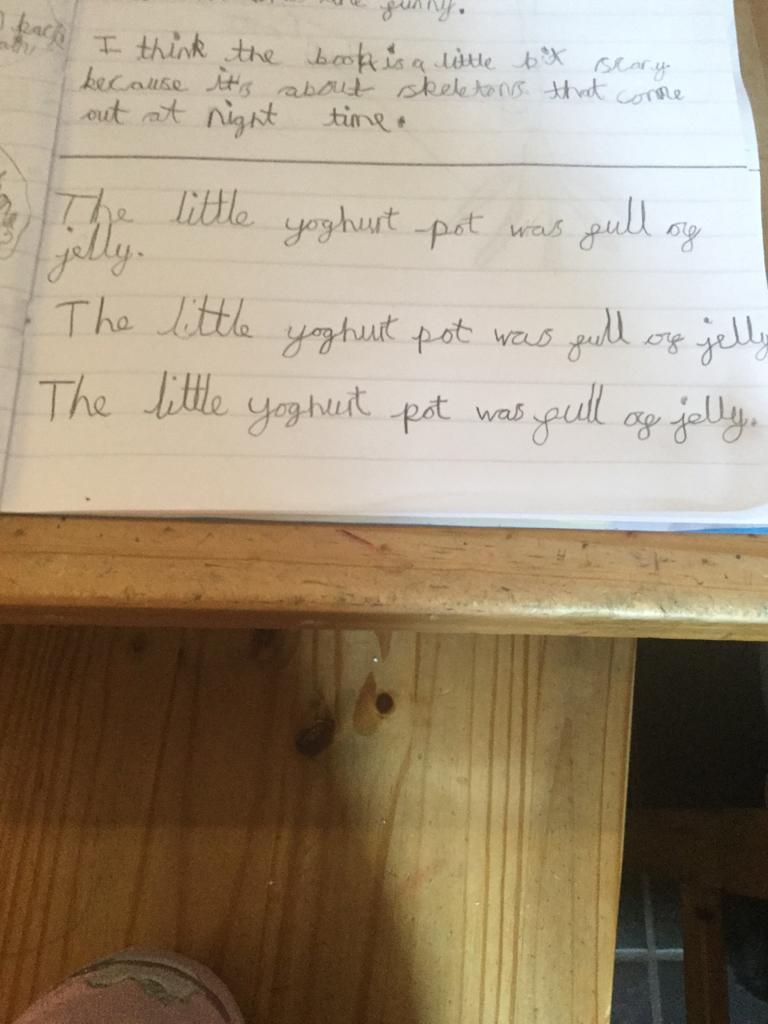 funny.
I think the book is a little bit scary
because it's about skeletons that come
out at night time.
The little yoghurt pot was full of
jelly.
The little yoghurt pot was full of jelly
The little yoghurt pot was full of jelly.